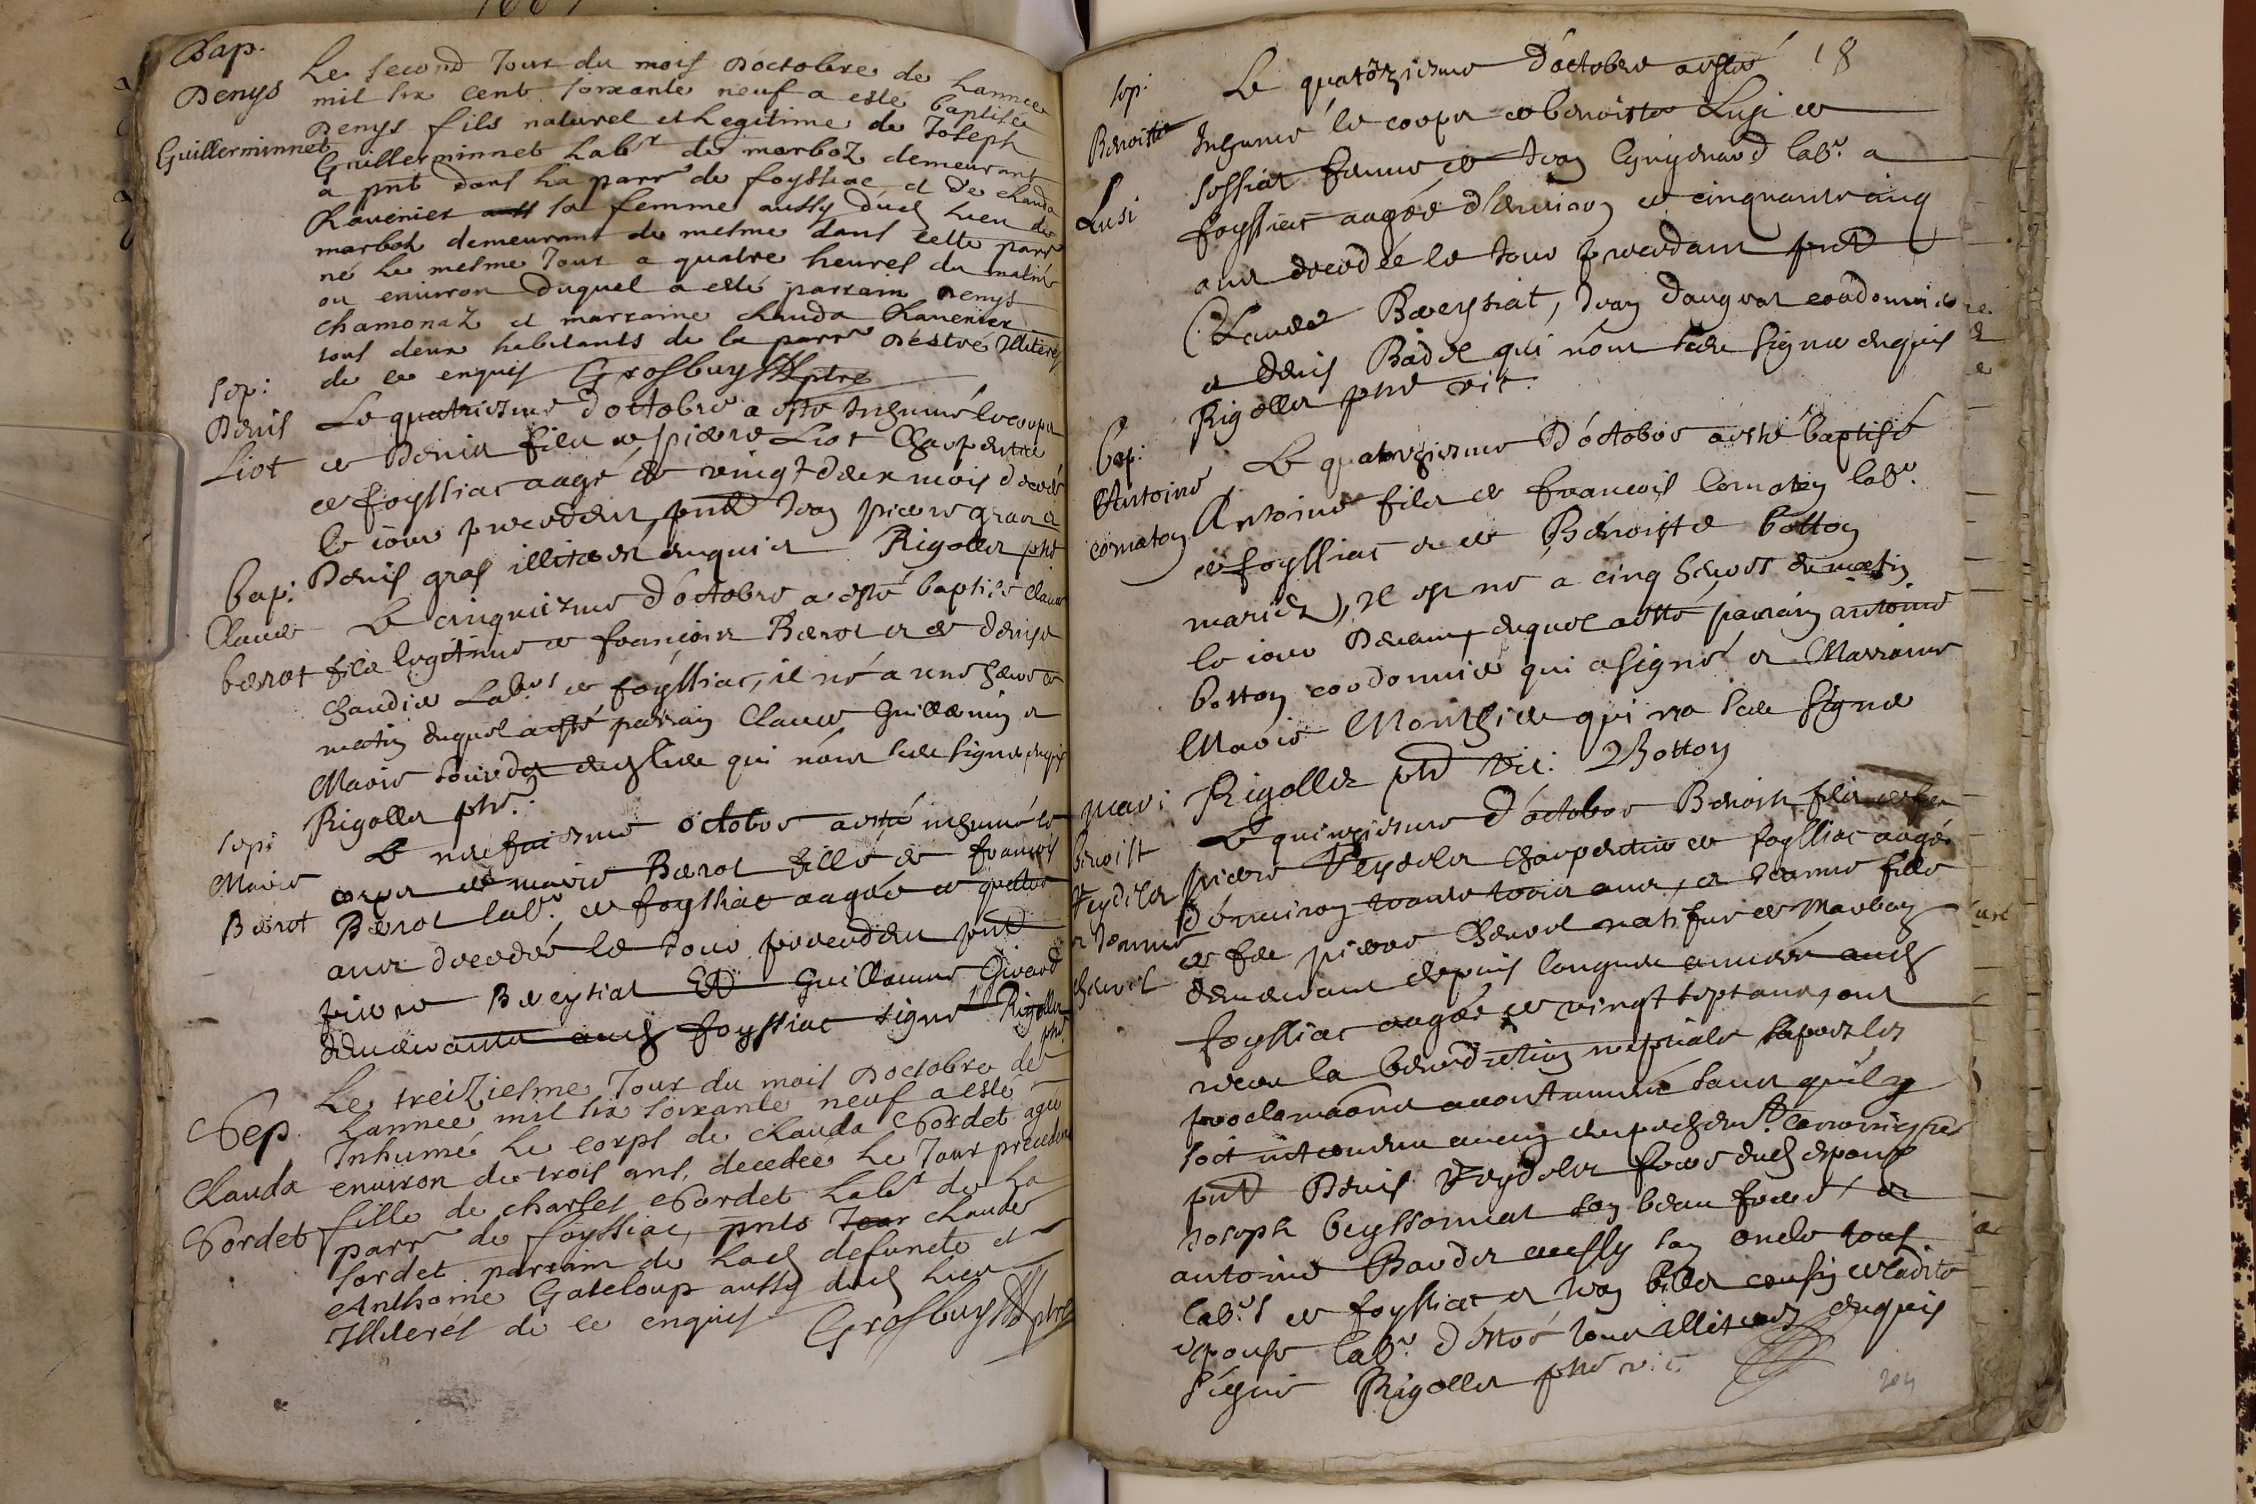 Bap.
Denys
Guillerminnet
Le second Jour du mois Doctobre de Lannee
mil six cent soixante neuf a esté baptisée
Denys fils naturel et Legitime de Joseph
Guillerminnet Labr de marboz demeurant
a pnt dans La parr de foyssiac, et de clauda
Rauenier sa femme aussy dud lieu de
marboz demeurant de mesme dans cette parr
né Le mesme Jour a quatre heures du matin
ou enuiron Duquel a esté parrain Denys
Chamonaz et marraine clauda Rauenier
tous deux habitants de la parr Destré Illiterés
de ce enquis Grosbuys ptre
Sep:
Denis
Liot
Le quatriesme d'octobre a esté Inhumé le corps
de Denis fils de pierre Liot Charpentié
de foyssiac aagé de vingt deux mois decedé
le iour precedent, pnt Jean pierre gras et
Denis gras illiteres enquis Rigollet ptre
Bap:
Claude
berot
Le cinquiesme d'octobre a esté baptisé Claude
fils legitime de françois Berot et de denise
Chandie Labrs de foyssiac, il né a une heure de
matin duquel a esté parrain Claude Guillemin et
Marie qui n'ont sceu signer enquis
Rigollet ptre.
Sep:
Marie
Berot
Le neufuiesme octobre a esté inhumé le
corps de marie Berot fille de françois
Berot labr. de foyssiac aagée de quatre
ans decedée le Jour precedent pnt
pierre Bereyziat Et Guillaume Girard
demeurants aud foyssiac signé Rigollet
ptre
Sep
Clauda
Sordet
Le treiziesme Jour du mois Doctobre de
Lannee mil six soixante neuf a esté
Inhumé Le corps de clauda Sordet agee
enuiron de trois ans, decedee Le Jour precedent
fille de charles Sordet Labr de La
parr de foyssiac, pnts Jean claude
Sordet parrain de Lad defuncte et
Anthoine Gateloup aussy dud lieu
Illiterés de ce enquis Grosbuys ptre
18
Sep.
Benoiste
Lusi
Le quatorziesme d'octobre a esté
Inhumé le corps de benoiste Lusi de
femme de Jean labr. a
foyssiac aagée d'enuiron de cinquante cinq
ans decedée le Jour precedent pnt
Claude Bereyziat, Jean cordonnier
et denis Badel qui n'ont sceu signer enquis
Rigollet ptre vic.
Bap:
Antoine
cornaton
Le quatorziesme D'octobre a esté baptisé
Antoine fils de francois Cornaton labr.
de foyssiac et de Benoiste botton
mariez, il est né a cinq heures du matin
le iour duquel a esté parrain antoine
botton cordonnier qui a signé et Marraine
Marie qui na sceu signer
Rigollet ptre vic. Botton
mar:
benoist
feydeler
et Jeanne
cheurel
Le quinziesme d'octobre Benoist fils de feu
pierre feydeler charpentier de foyssiac aagé
d'enuiron trante trois ans, et Jeanne fille
de feu pierre Cheurel natifue de Marboz
demeurant depuis longues années aud
foyssiac aagée de vingt sept ans, ont
receu la benediction nuptiale apres les
proclamaons accoutumée sans qu'il y
soit interuenu aucun empeschemt. Canonique
pnt Denis feydeler frere dud espoux
Joseph beyssonnat son beau frere, et
antoine aussy son oncle tous
labrs de foyssiac et Jean billet cousin de ladite
espouse labr. d'estré tous illiteres enquis
signé Rigollet ptre vic
204